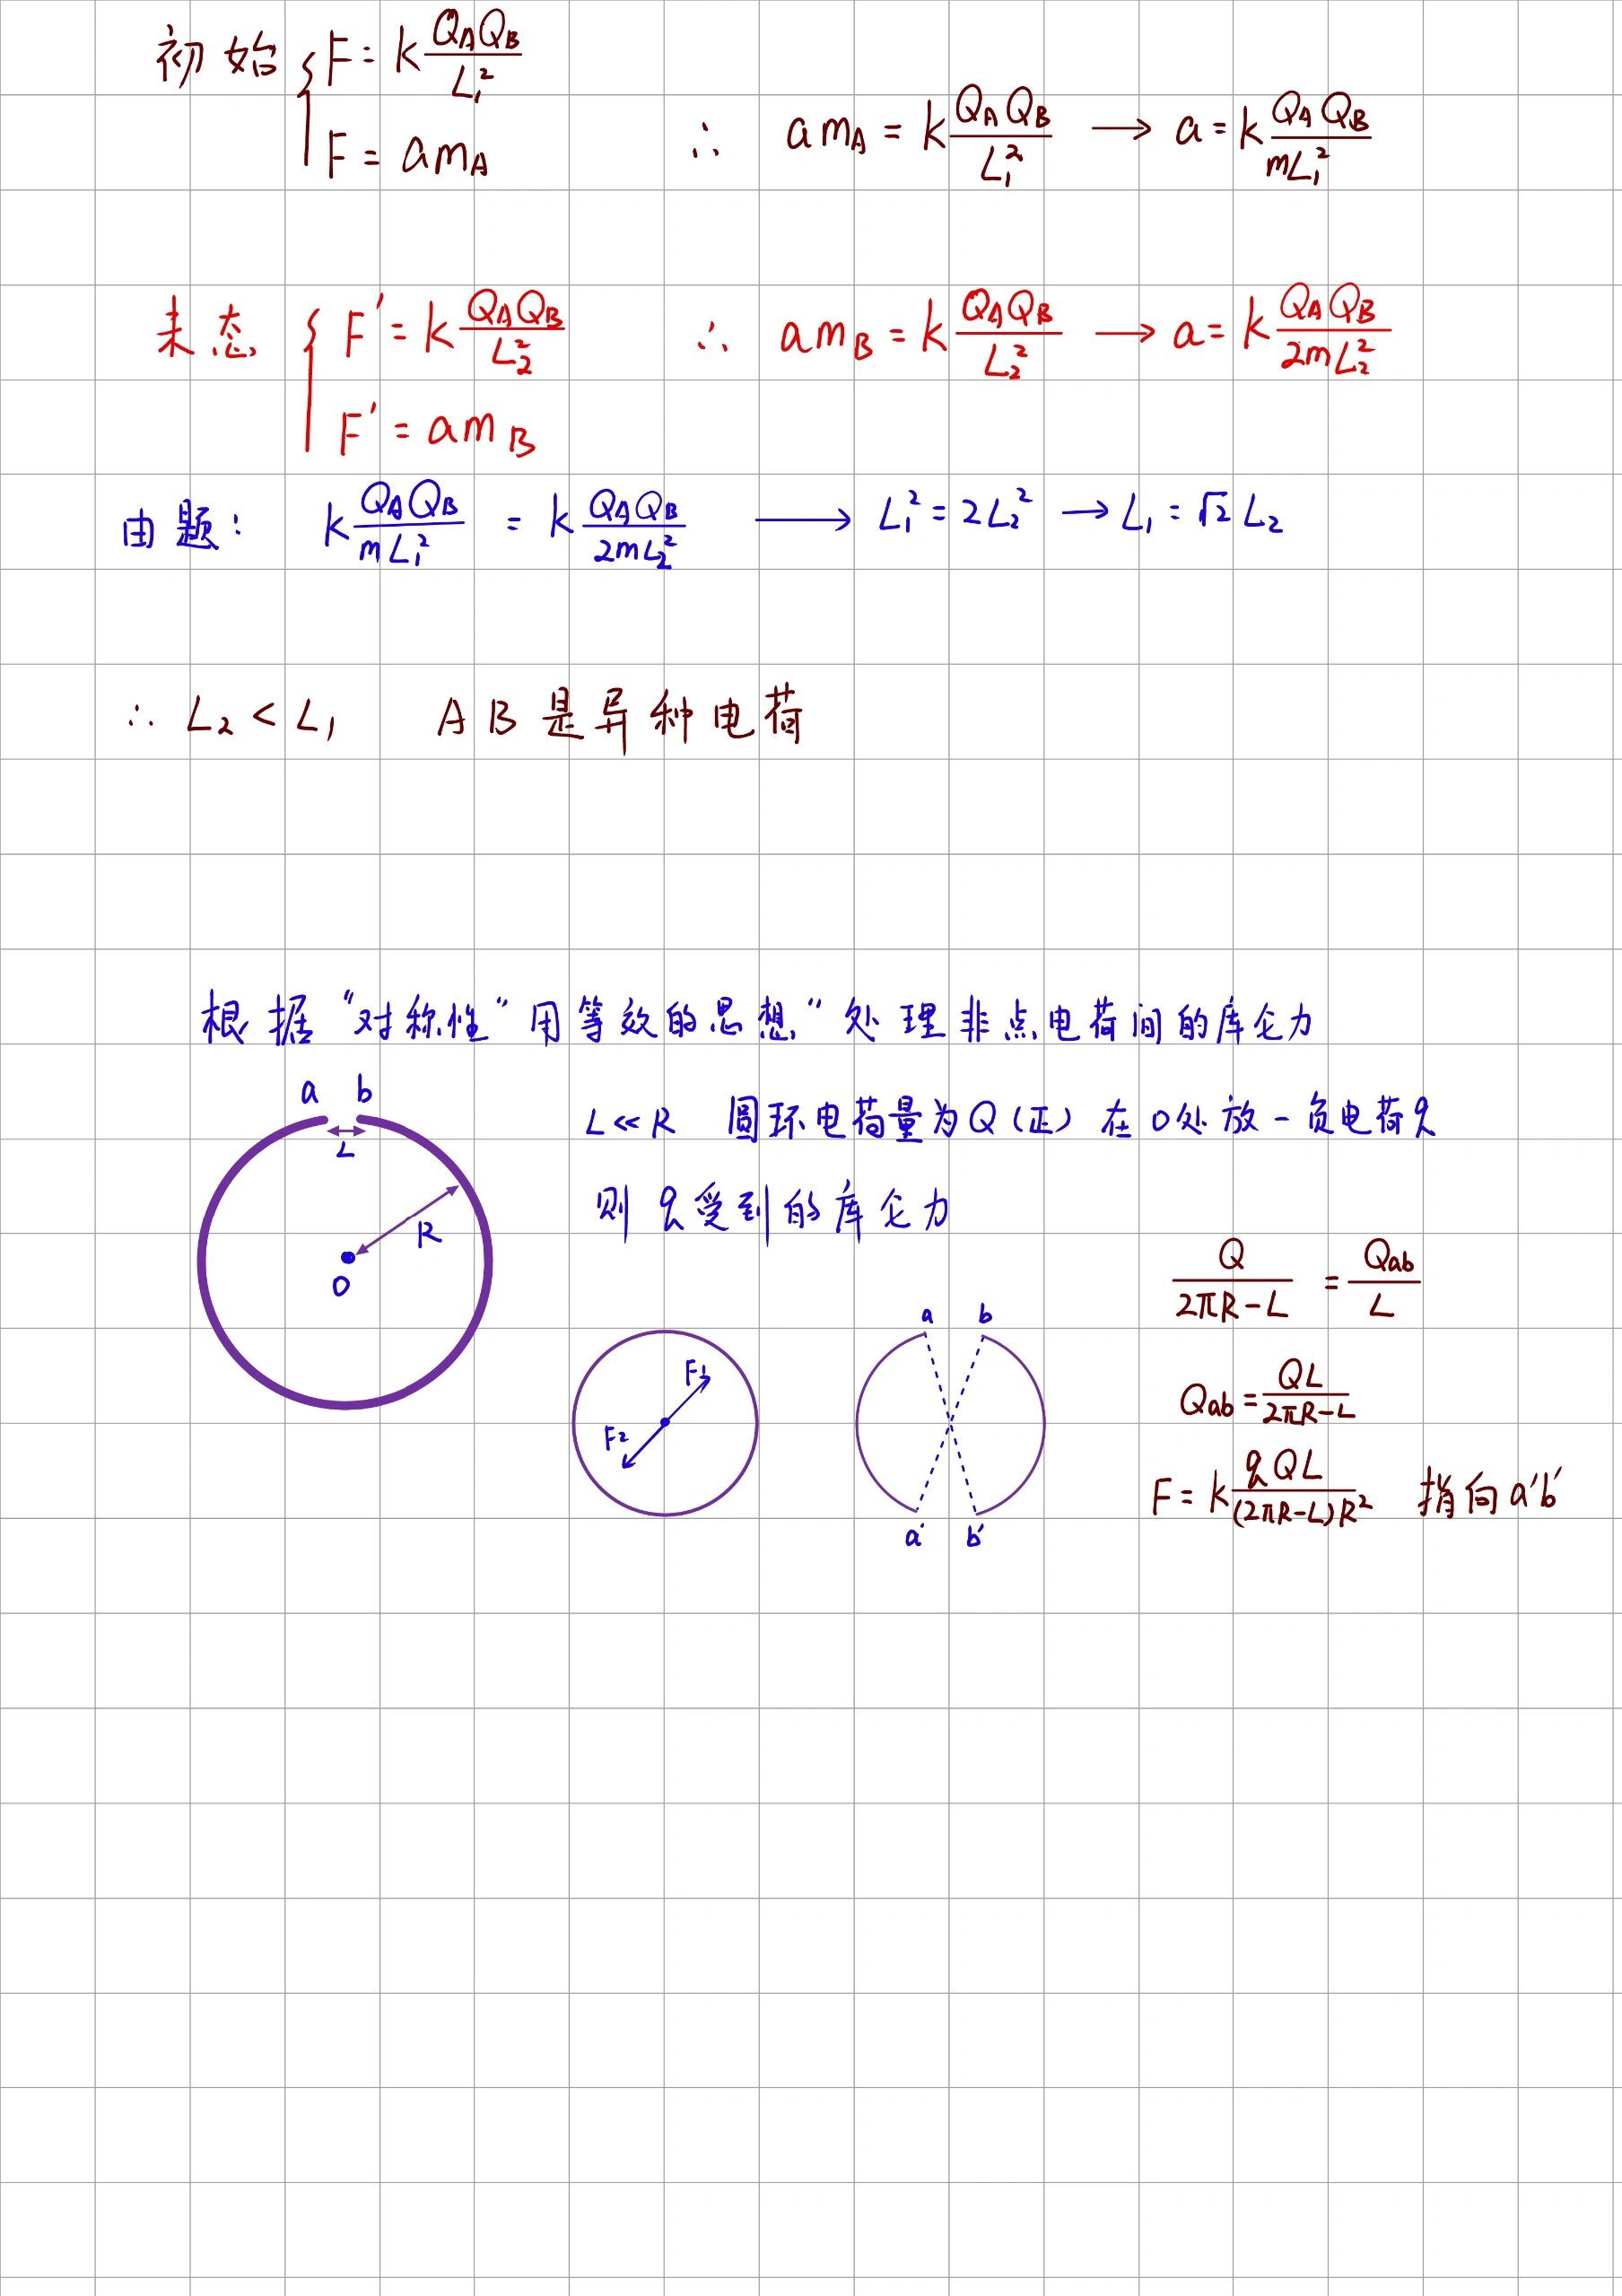 初始 { F = k Q_A Q_B / L₁²
F = a m_A ∴ a m_A = k Q_A Q_B / L₁² → a = k Q_A Q_B / mL₁²
末态 { F' = k Q_A Q_B / L₂² ∴ a m_B = k Q_A Q_B / L₂² → a = k Q_A Q_B / 2mL₂²
F' = a m_B
由题: k Q_A Q_B / mL₁² = k Q_A Q_B / 2mL₂² → L₁² = 2L₂² → L₁ = √2 L₂
∴ L₂ < L₁ AB是异种电荷
根据“对称性”用等效的思想“处理非点电荷间的库仑力
a b
L
R
O
L≪R 圆环电荷量为Q(正) 在O处放一负电荷q
则q受到的库仑力
F₁
F₂
a b
a' b'
Q / (2πR-L) = Q_ab / L
Q_ab = QL / (2πR-L)
F = k qQL / (2πR-L)R² 指向a'b'